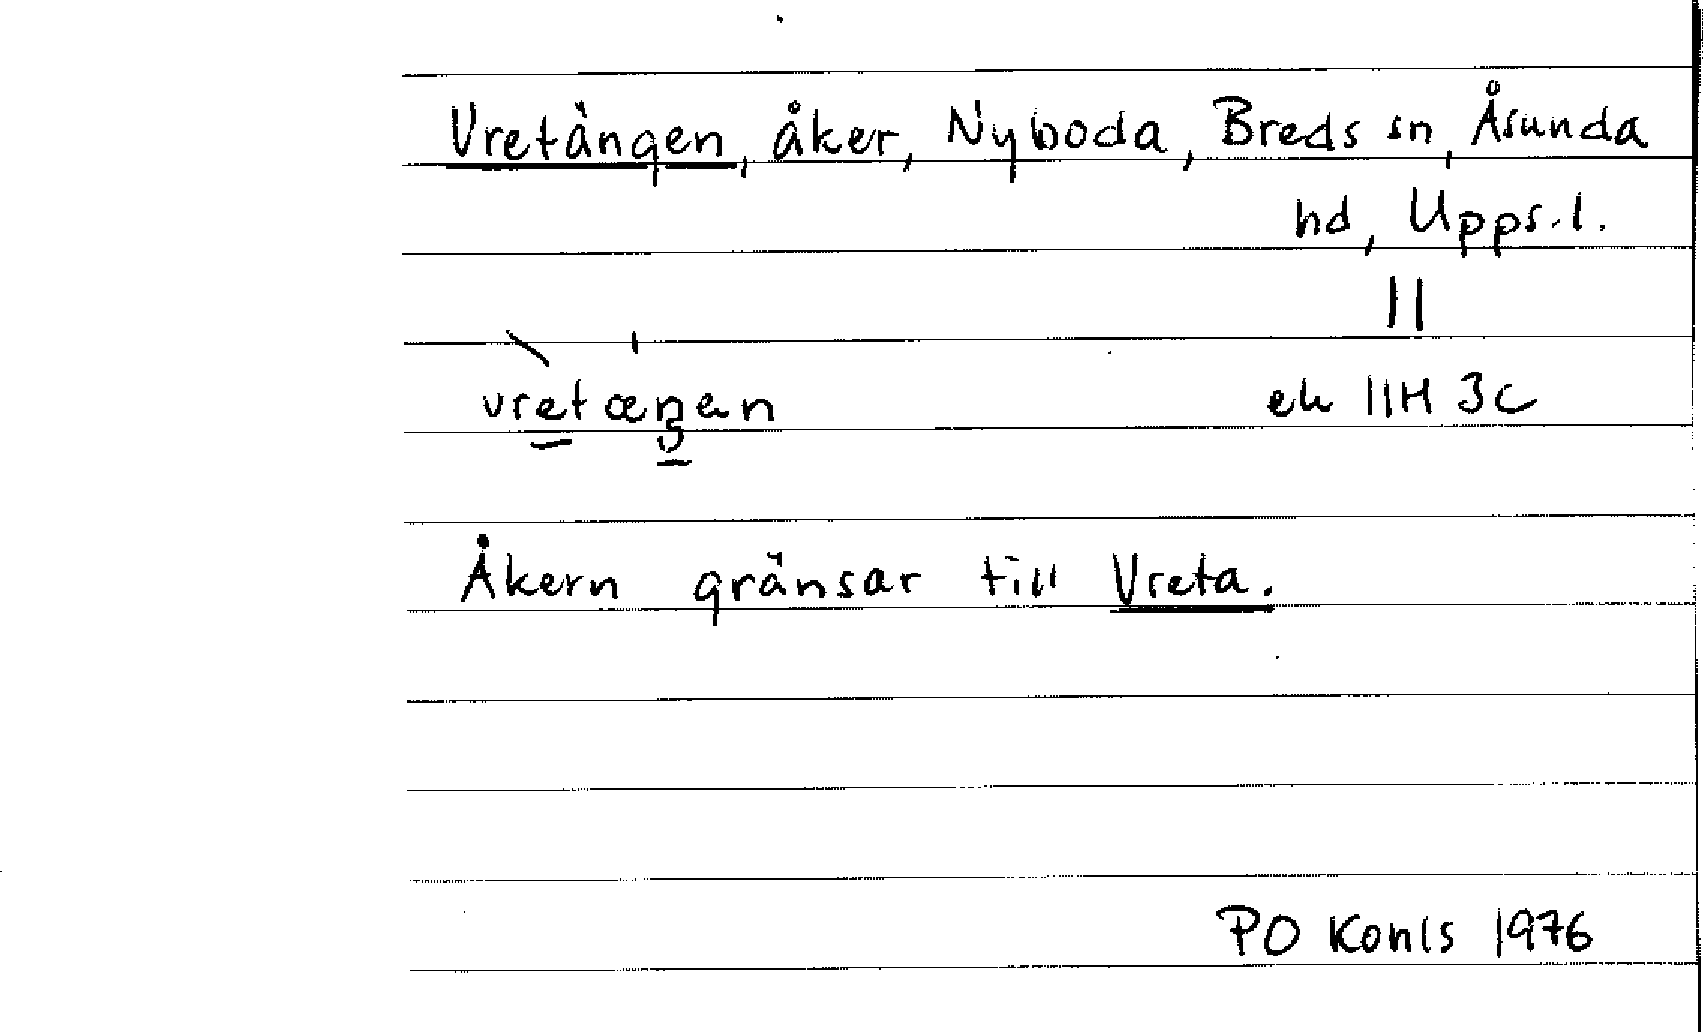 Vretängen, åker, Nyboda, Breds sn, Åsunda
hd, Upps.l.
11
vretæŋen ek 11H 3C
Åkern gränsar till Vreta.
PO 1976